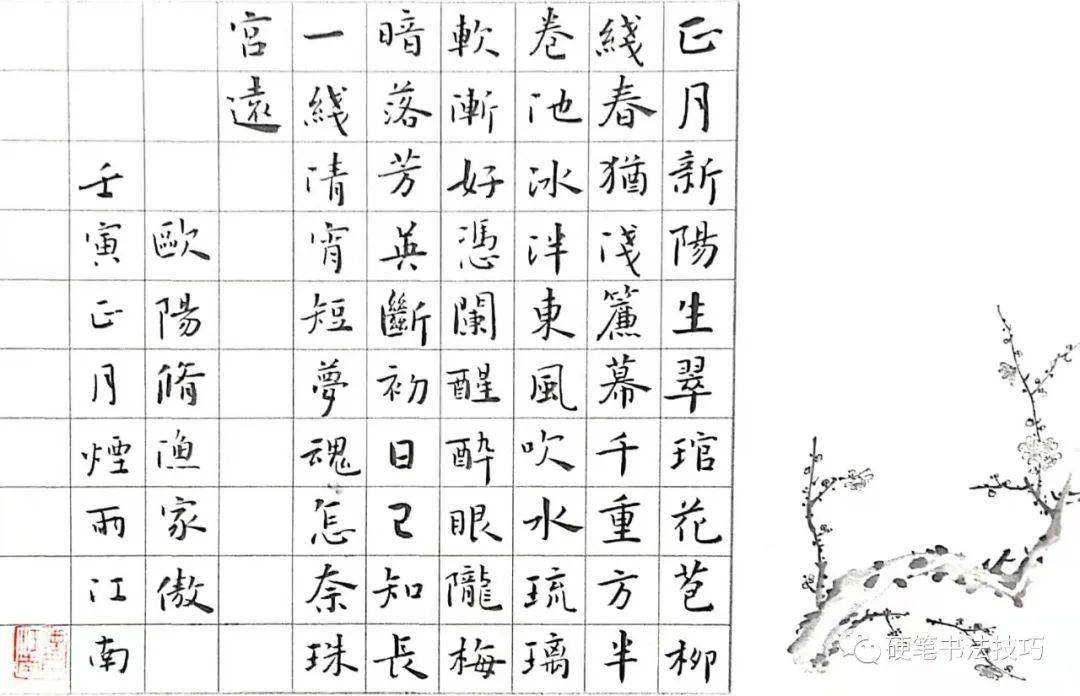 正月新陽生翠琯花苞柳
綫春猶淺簾幕千重方半
卷池冰泮東風吹水琉璃
軟漸好憑闌醒醉眼隴梅
暗落芳英斷初日已知長
一綫清宵短夢魂怎奈珠
宮遠
歐陽脩漁家傲
壬寅正月煙雨江南
硬笔书法技巧